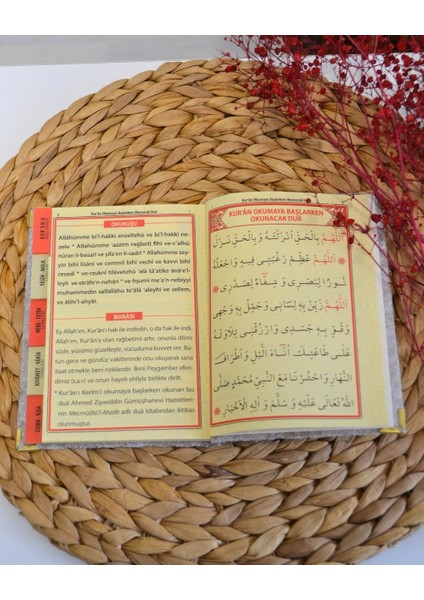 Kur'ân Okumaya Başlarken Okunacak Duâ
OKUNUŞU
Allâhümme bi'l-hakki enzeltehü ve bi'l-hakki ne-
zele * Allahümme 'azzim rağbetî fîhi ve-c'alhü
nûran li-basarî ve şifa'en li-sadrî * Allahümme zey-
yin bihî lisânî ve cemmil bihî vechî ve kavvi bihî
cesedî * ve-rzuknî tilâvetehû 'alâ tâ'atike ânâ'e'l-
leyli ve etrâfe'n-nehâri * ve-hşurnî me'a'n-nebiyyi
muhammedin sallallâhu te'âlâ 'aleyhi ve sellem,
ve âlihi'l-ahyâr.
MANÂSI
Ey Allah'ım, Kur'ân'ı hak ile indirdin, o da hak ile indi.
Allah'ım, Kur'ân'a olan rağbetimi artır, onunla dilimi
süsle, yüzümü güzelleştir, vücuduma kuvvet ver. Bü-
tün gece ve gündüz vakitlerinde onu okuyarak sana
itaat etmekle beni rızıklandır. Beni Peygamber efen-
dimiz (s.a.v) ve onun hayırlı ehliyle birlikte dirilt.
* Kur'ân-ı Kerîm'i okumaya başlarken okunan bu
duâ Ahmed Ziyaeddin Gümüşhanevi Hazretleri-
nin Mecmûâtü'l-Ahzâb adlı duâ kitabından iktibas
olunmuştur.
Kur'ân Okumaya Başlarken Okunacak Duâ
KUR'ÂN OKUMAYA BAŞLARKEN
OKUNACAK DUÂ
اَللّٰهُمَّ بِالْحَقِّ اَنْزَلْتَهُ وَ بِالْحَقِّ نَزَلَ
اَللّٰهُمَّ عَظِّمْ رَغْبَتِى فِيهِ وَ اجْعَلْهُ
نُورًا لِبَصَرِى وَ شِفَاءً لِصَدْرِى
اَللّٰهُمَّ زَيِّنْ بِهِ لِسَانِى وَ جَمِّلْ بِهِ وَجْهِى
وَ قَوِّ بِهِ جَسَدِى وَ ارْزُقْنِى تِلَاوَتَهُ
عَلَى طَاعَتِكَ اٰنَاءَ الَّيْلِ وَ اَطْرَافَ
النَّهَارِ وَ احْشُرْنَا مَعَ النَّبِىِّ مُحَمَّدٍ صَلَّى
اللّٰهُ تَعَالٰى عَلَيْهِ وَ سَلَّمَ وَ اٰلِهِ الْاَخْيَارِ